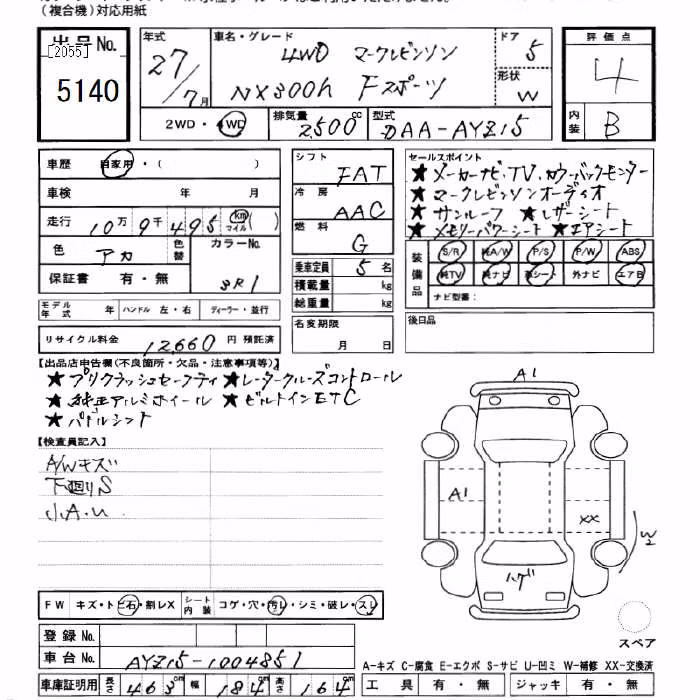 (複合機)対応用紙
出品No.
[2055]
5140
年式
27/7月
車名・グレード
4WD マークレビンソン
NX300h Fスポーツ
ドア
5
形状
W
評価点
4
内装
B
2WD・4WD
排気量
2,500cc
型式
DAA-AYZ15
車歴 自家用・( )
車検 年 月
走行 10万9千495 km マイル( )
色 アカ
色替
カラーNo.
3R1
保証書 有・無
シフト
FAT
冷房
AAC
燃料
G
乗車定員 5名
積載量 kg
総重量 kg
セールスポイント
★メーカーナビ、TV、カラーバックモニター
★マークレビンソンオーディオ
★サンルーフ ★レザーシート
★メモリーパワーシート ★エアシート
装備品
S/R 純A/W P/S P/W ABS
純TV 純ナビ 革シート 外ナビ エアB
ナビ型番:
モデル年式 年 ハンドル 左・右 ディーラー・並行
リサイクル料金 12,660 円 預託済
名変期限
月 日
後日品
【出品店申告欄(不良箇所・欠品・注意事項等)】
★プリクラッシュセーフティ ★レーダークルーズコントロール
★純正アルミホイール ★ビルトインETC
★パドルシフト
【検査員記入】
A/Wキズ
下廻りS
小A・U
A1
A1
XX
W2
ハゲ
スペア
FW キズ・トビ石・割レX シート内装 コゲ・穴・汚レ・シミ・破レ・スレ
登録No.
車台No. AYZ15-1004851
車庫証明用 長さ 463cm 幅 184cm 高さ 164cm
A-キズ C-腐食 E-エクボ S-サビ U-凹ミ W-補修 XX-交換済
工具 有・無 ジャッキ 有・無